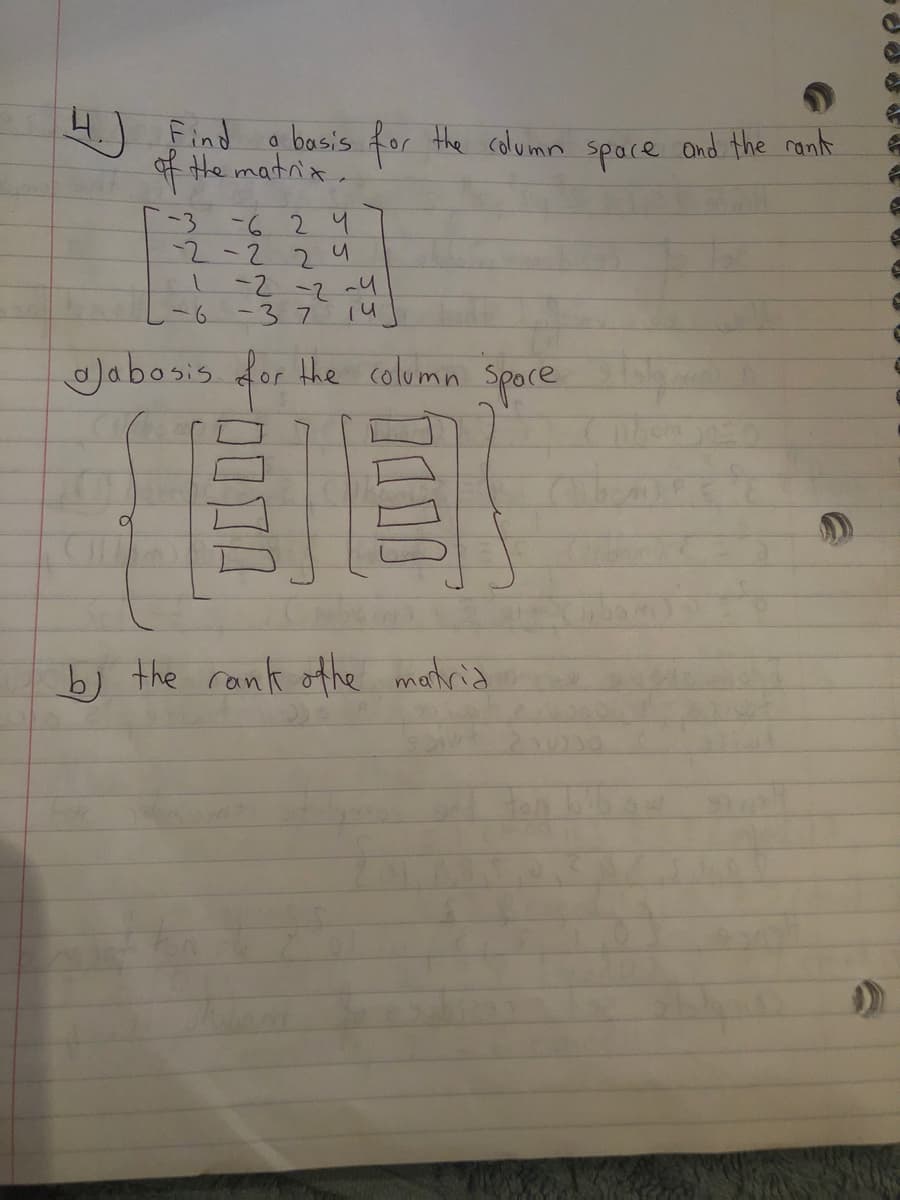 4.) Find a basis for the column space and the rank
of the matrix.
-3 -6 2 4
-2 -2 2 4
1 -2 -2 -4
-6 -3 7 14
a) a basis for the column space
b) the rank ofthe matrix